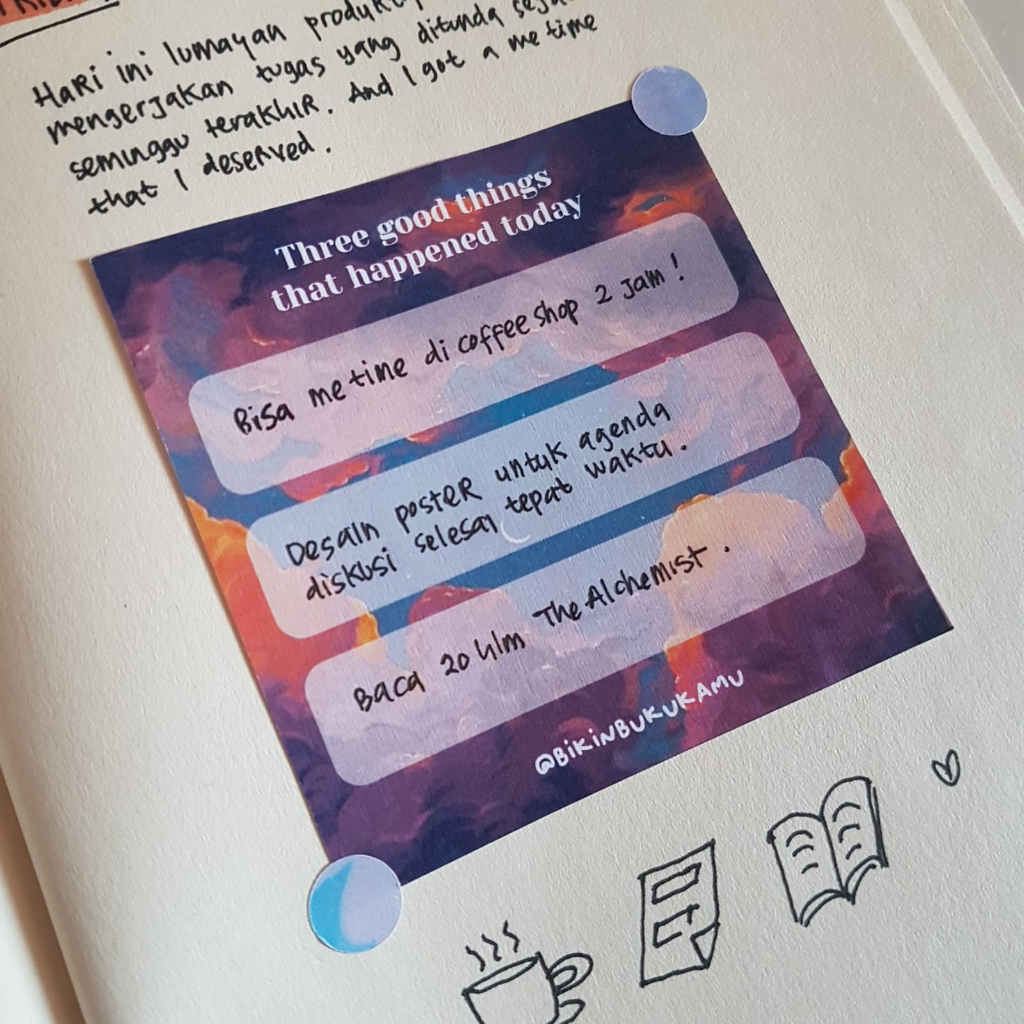 Hari ini lumayan
mengerjakan tugas yang ditunda
seminggu terakhir. And I got a me time
that I deserved.
Three good things
that happened today
Bisa me time di coffee shop 2 jam!
Desain poster untuk agenda
diskusi selesai tepat waktu.
Baca 20 hlm The Alchemist.
@BIKINBUKUKAMU